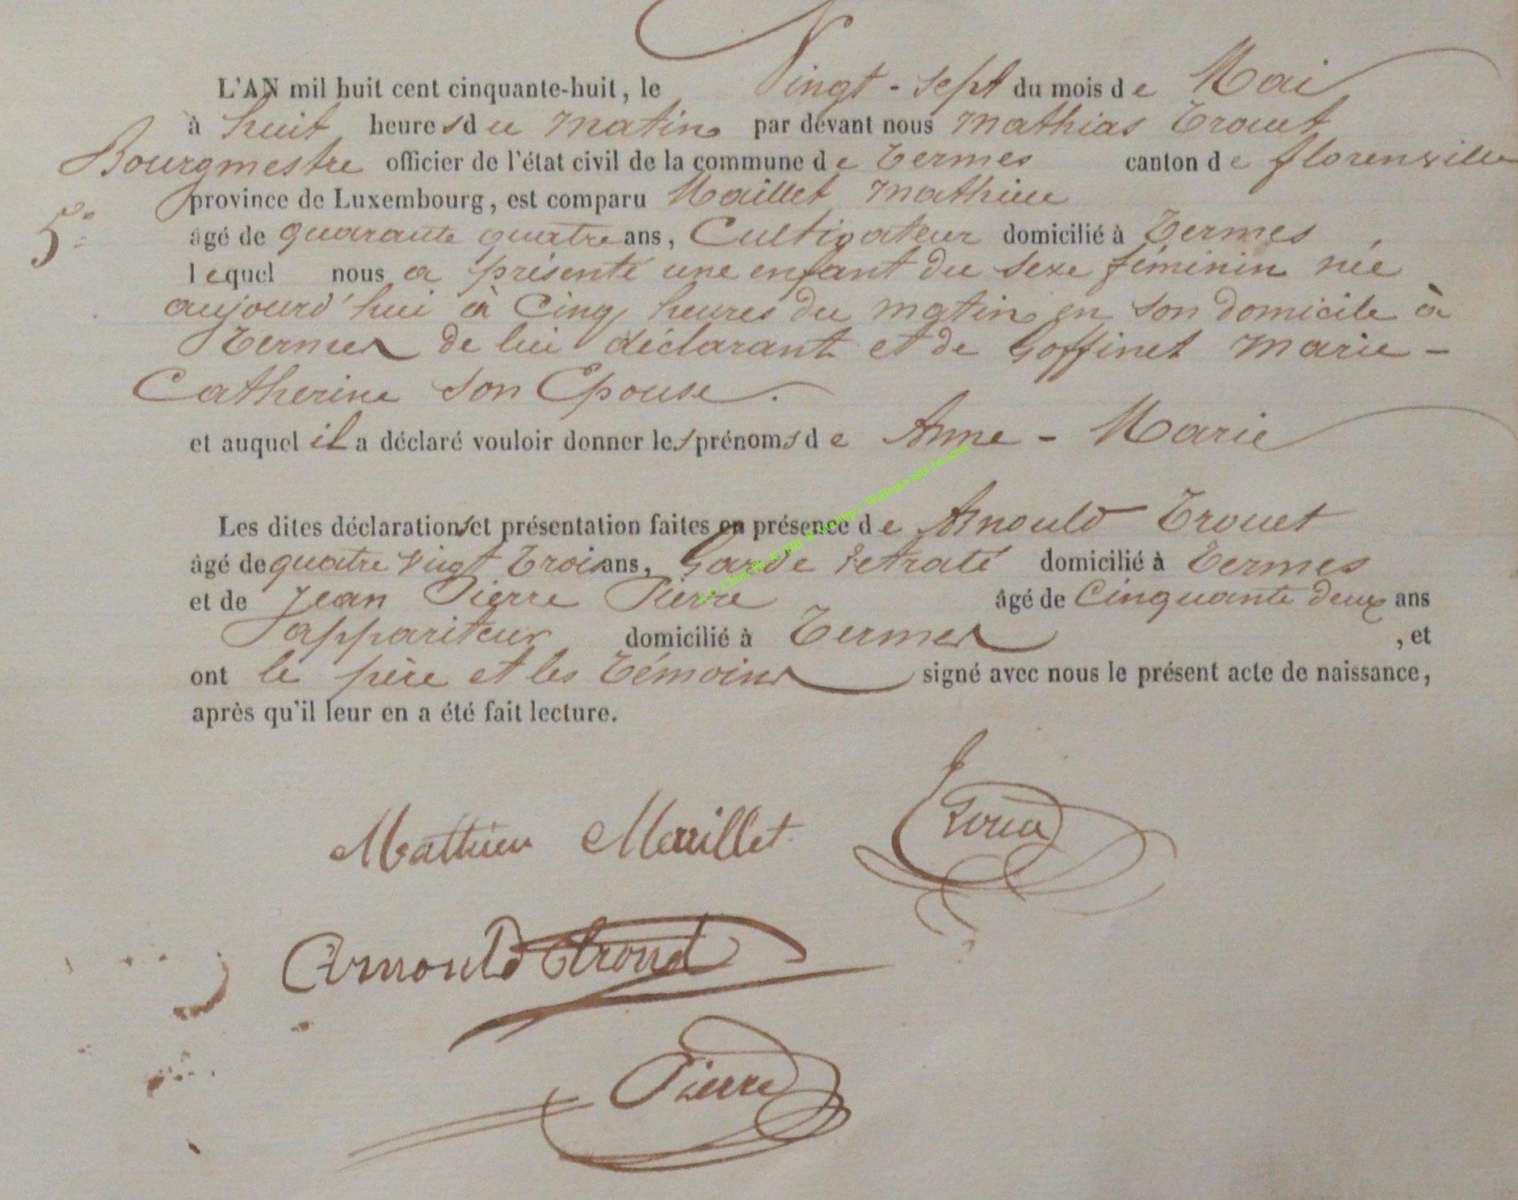 L'AN mil huit cent cinquante-huit, le Vingt-sept du mois de Mai
à huit heures du matin par devant nous Mathias Trouet
Bourgmestre officier de l'état civil de la commune de Termes canton de florenville
province de Luxembourg, est comparu Maillet Mathieu
5°
âgé de quarante quatre ans, Cultivateur domicilié à Termes
lequel nous a présenté une enfant du sexe féminin née
aujourd'hui à Cinq heures du matin en son domicile à
Termes de lui déclarant et de Goffinet Marie-
Catherine son Epouse.
et auquel il a déclaré vouloir donner les prénoms de Anne-Marie
Les dites déclarations et présentation faites en présence de Arnould Trouet
âgé de quatre vingt trois ans, Garde retraité domicilié à Termes
et de Jean Pierre Pierre âgé de Cinquante deux ans
appariteur domicilié à Termes , et
ont le père et les témoins signé avec nous le présent acte de naissance,
après qu'il leur en a été fait lecture.
Mathieu Maillet
Arnould Trouet
Pierre